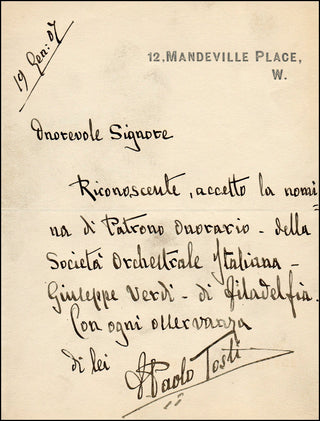 19 Gen: 07
12, MANDEVILLE PLACE,
W.
Onorevole Signore
Riconoscente, accetto la nomi=
na di Patrono Onorario - della
Società Orchestrale Italiana -
Giuseppe Verdi - di Filadelfia.
Con ogni osservanza
di lei
F Paolo Tosti